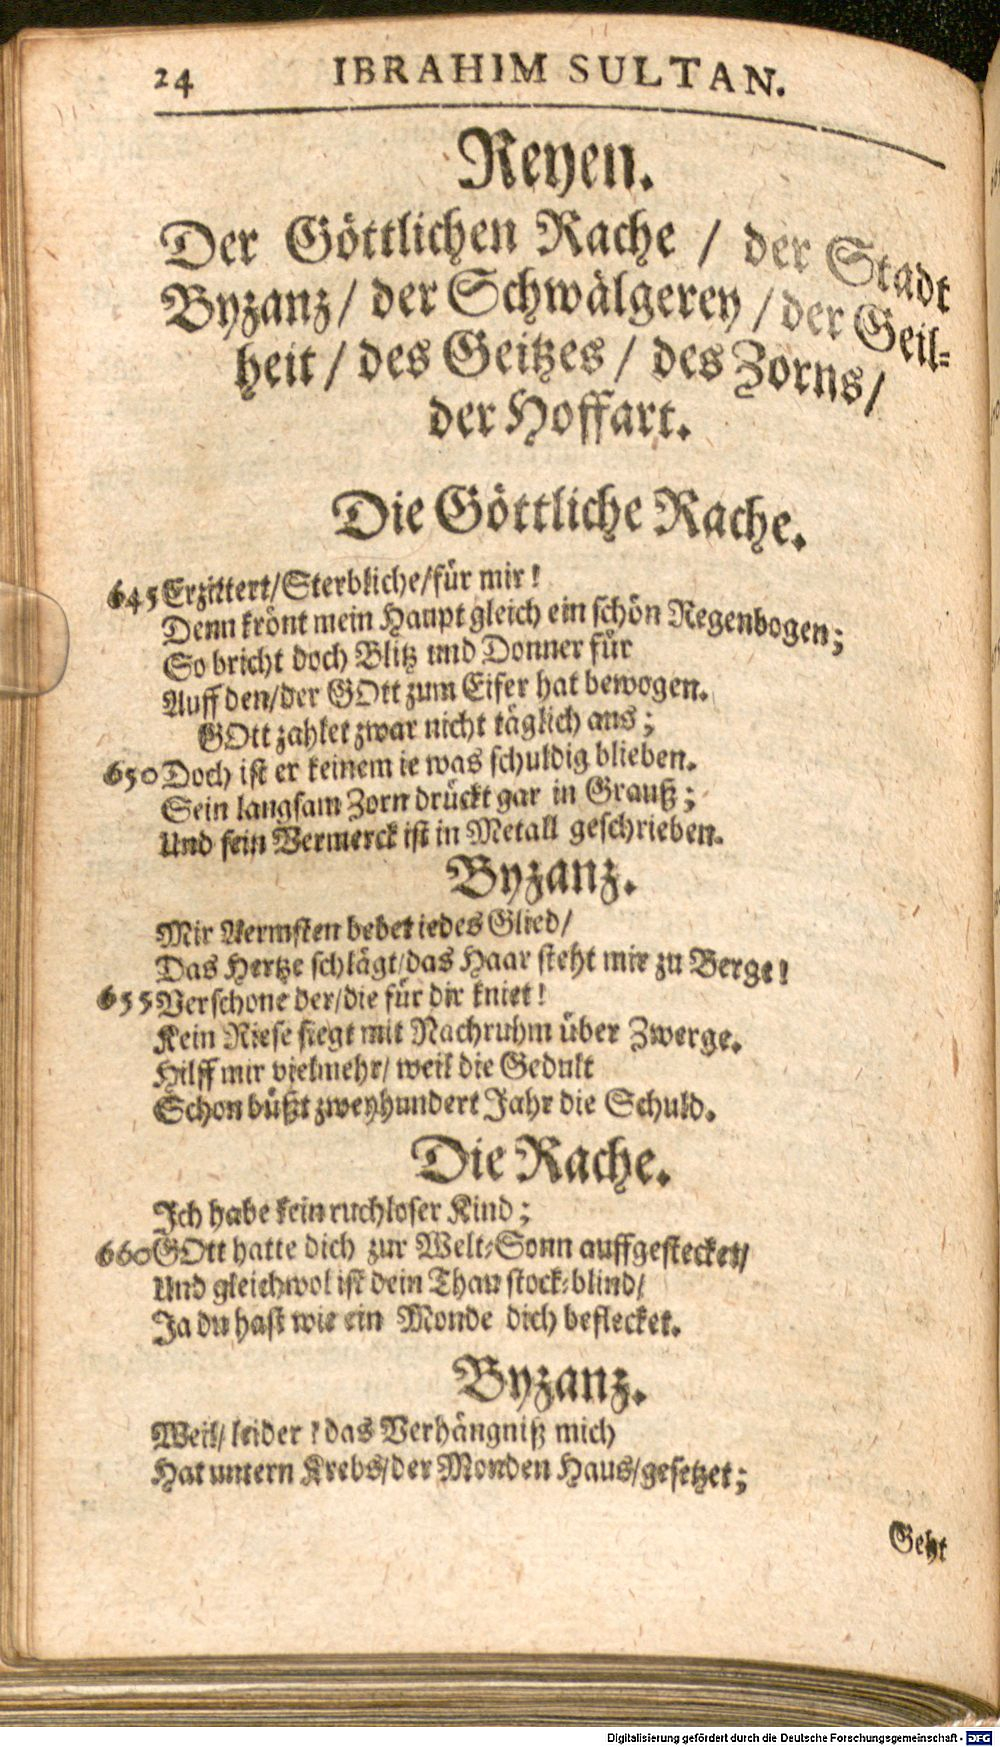 24 IBRAHIM SULTAN.
Reyen.
Der Göttlichen Rache / der Stadt
Byzanz / der Schwälgerey / der Geil-
heit / des Geitzes / des Zorns /
der Hoffart.
Die Göttliche Rache.
645 Erzittert / Sterbliche / für mir!
Denn krönt mein Haupt gleich ein schön Regenbogen;
So bricht doch Blitz und Donner für
Auff den / der GOtt zum Eifer hat bewogen.
GOtt zahlet zwar nicht täglich aus;
650 Doch ist er keinem ie was schuldig blieben.
Sein langsam Zorn drückt gar in Grauß;
Und sein Vermerck ist in Metall geschrieben.
Byzanz.
Mir Aermsten bebet iedes Glied /
Das Hertze schlägt / das Haar steht mir zu Berge!
655 Verschone der / die für dir kniet!
Kein Riese siegt mit Nachruhm über Zwerge.
Hilff mir vielmehr / weil die Gedult
Schon büßt zweyhundert Jahr die Schuld.
Die Rache.
Ich habe kein ruchloser Kind;
660 GOtt hatte dich zur Welt-Sonn auffgestecket /
Und gleichwol ist dein Thau stock-blind /
Ja du hast wie ein Monde dich beflecket.
Byzanz.
Weil / leider! das Verhängniß mich
Hat untern Krebs / der Monden Haus / gesetzet;
Geht
Digitalisierung gefördert durch die Deutsche Forschungsgemeinschaft - DFG